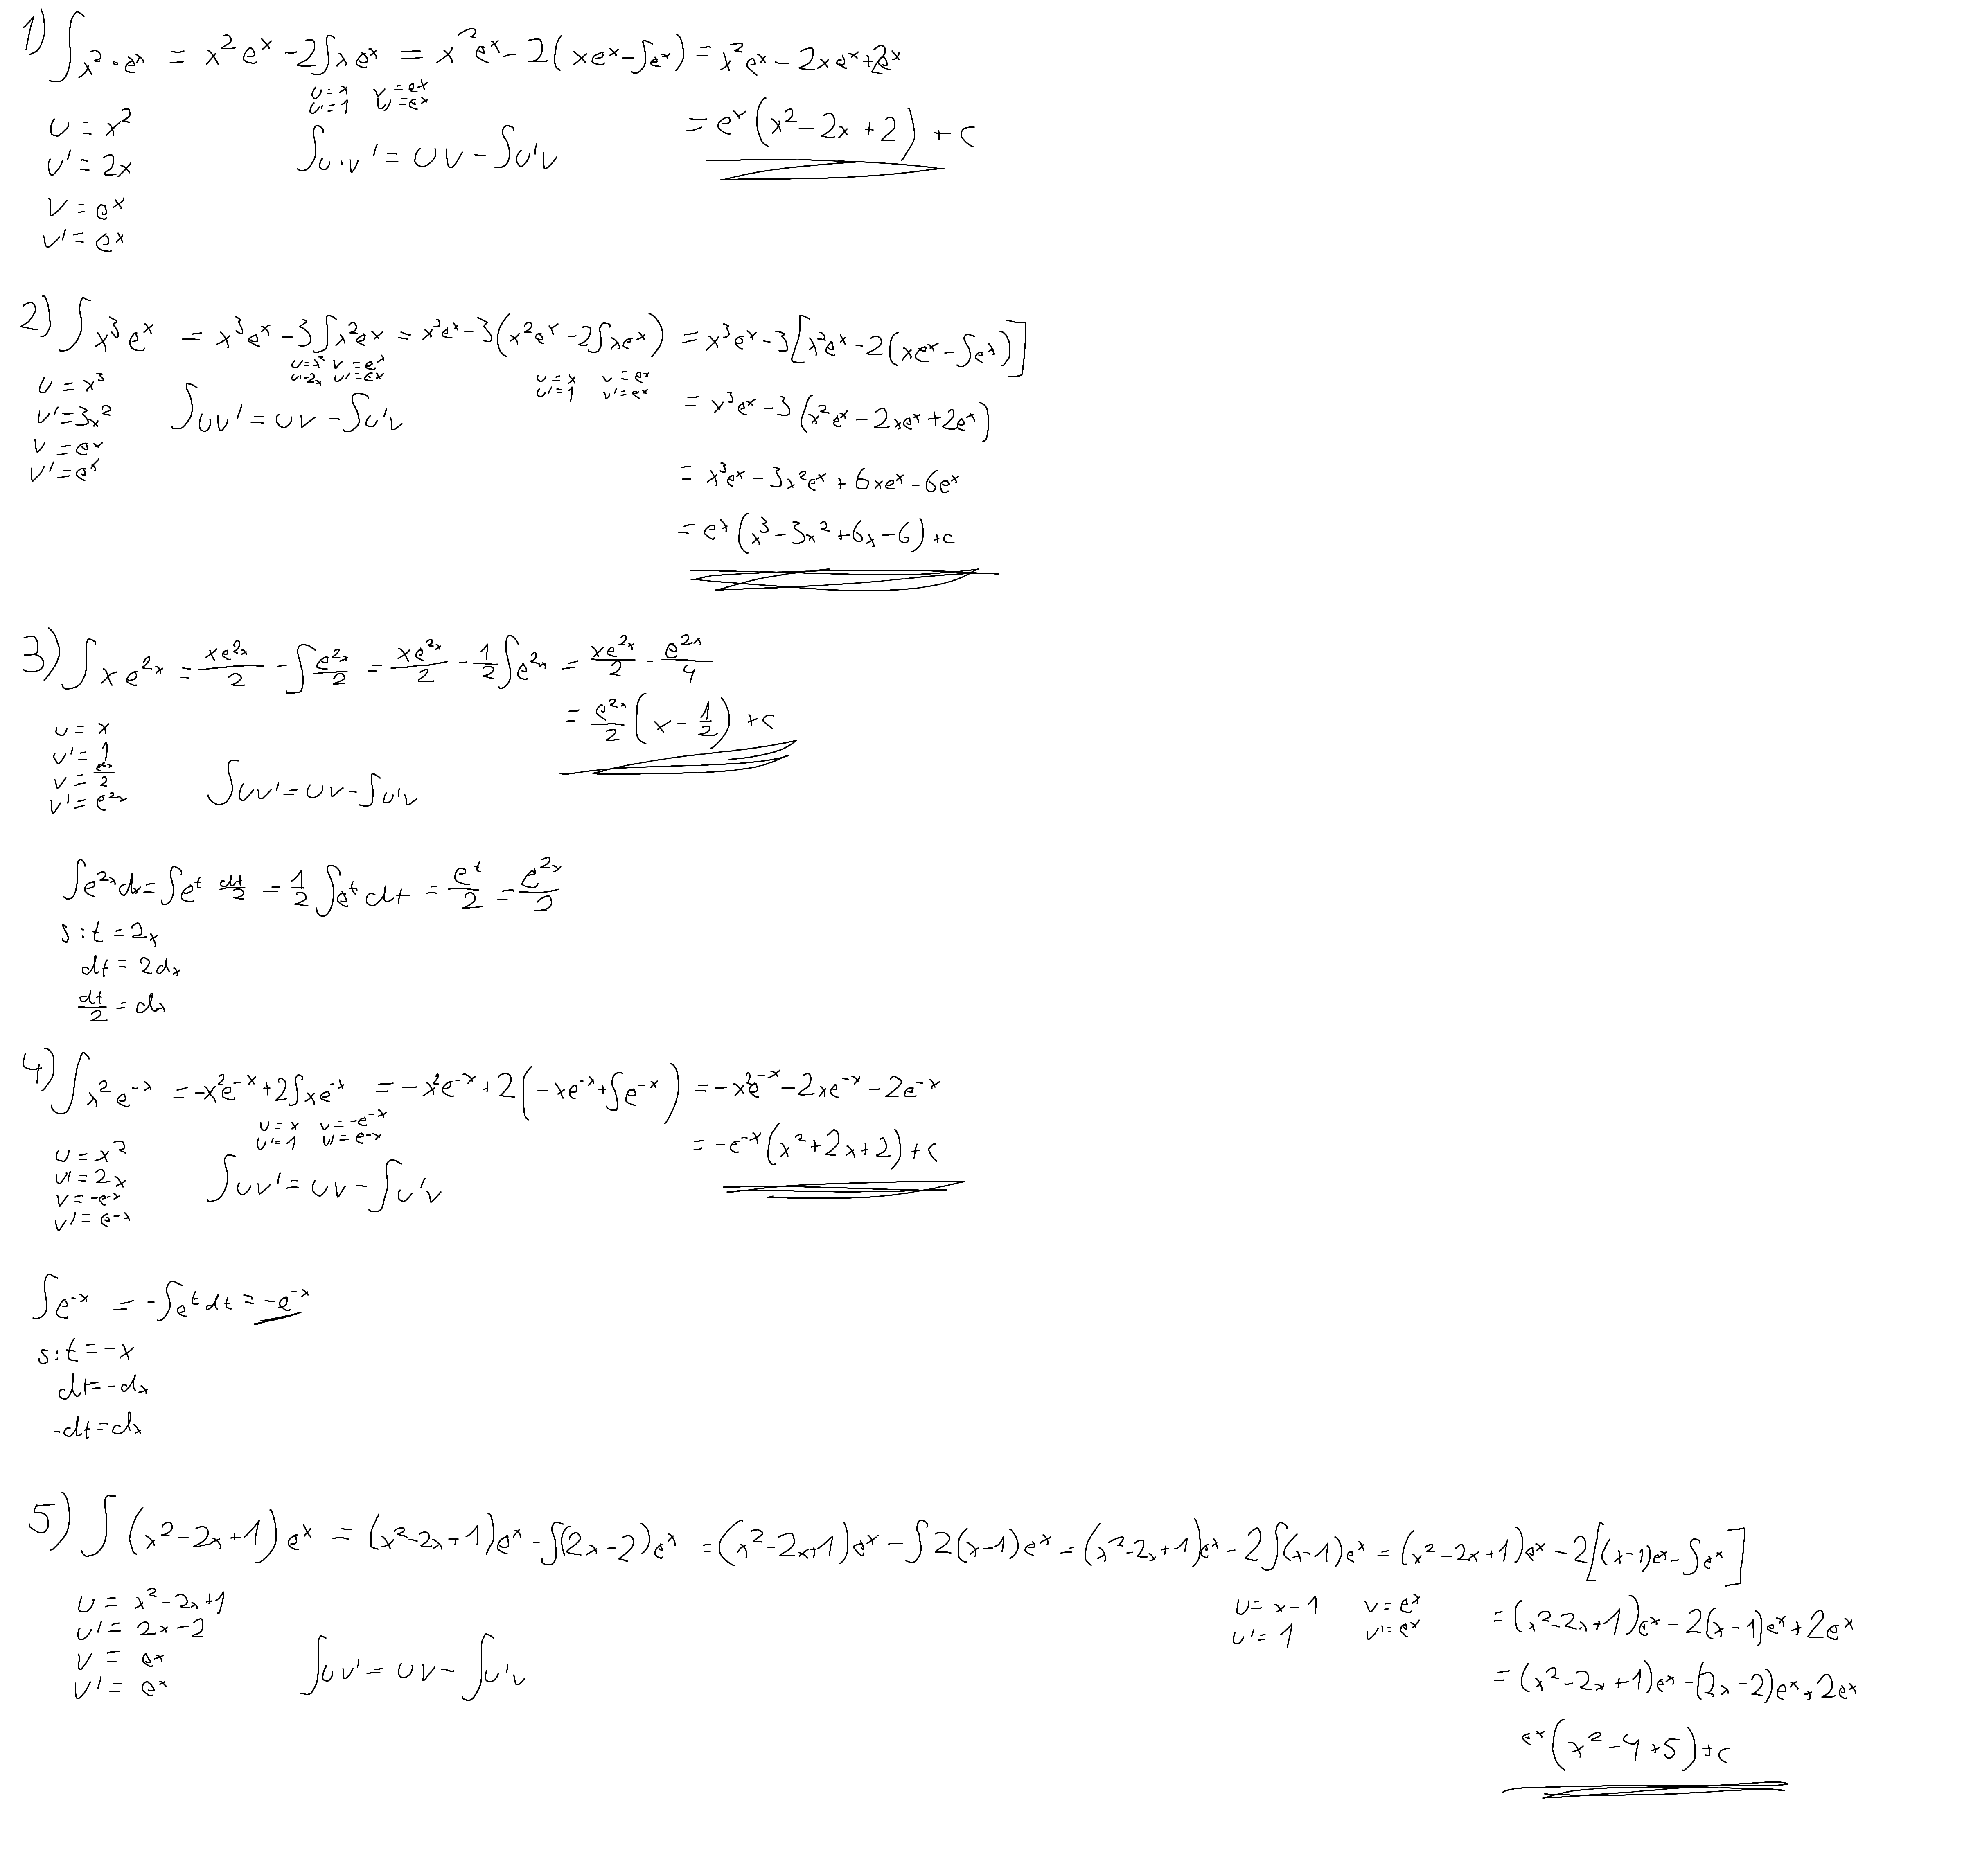 1) ∫x²·eˣ = x²eˣ - 2∫xeˣ = x²eˣ - 2(xeˣ - ∫eˣ) = x²eˣ - 2xeˣ + 2eˣ
u = x v = eˣ
u' = 1 v' = eˣ
= eˣ(x² - 2x + 2) + c
u = x²
u' = 2x
v = eˣ
v' = eˣ
∫u·v' = uv - ∫u'v
2) ∫x³eˣ = x³eˣ - 3∫x²eˣ = x³eˣ - 3(x²eˣ - 2∫xeˣ) = x³eˣ - 3[x²eˣ - 2(xeˣ - ∫eˣ)]
u = x² v = eˣ
u' = 2x v' = eˣ
u = x v = eˣ
u' = 1 v' = eˣ
= x³eˣ - 3(x²eˣ - 2xeˣ + 2eˣ)
= x³eˣ - 3x²eˣ + 6xeˣ - 6eˣ
= eˣ(x³ - 3x² + 6x - 6) + c
u = x³
u' = 3x²
v = eˣ
v' = eˣ
∫uv' = uv - ∫u'v
3) ∫xe²ˣ = xe²ˣ/2 - ∫e²ˣ/2 = xe²ˣ/2 - 1/2∫e²ˣ = xe²ˣ/2 - e²ˣ/4
= e²ˣ/2(x - 1/2) + c
u = x
u' = 1
v = e²ˣ/2
v' = e²ˣ
∫uv' = uv - ∫u'v
∫e²ˣdx = ∫eᵗ dt/2 = 1/2∫eᵗdt = eᵗ/2 = e²ˣ/2
s: t = 2x
dt = 2dx
dt/2 = dx
4) ∫x²e⁻ˣ = -x²e⁻ˣ + 2∫xe⁻ˣ = -x²e⁻ˣ + 2(-xe⁻ˣ + ∫e⁻ˣ) = -x²e⁻ˣ - 2xe⁻ˣ - 2e⁻ˣ
u = x v = -e⁻ˣ
u' = 1 v' = e⁻ˣ
= -e⁻ˣ(x² + 2x + 2) + c
u = x²
u' = 2x
v = -e⁻ˣ
v' = e⁻ˣ
∫uv' = uv - ∫u'v
∫e⁻ˣ = -∫eᵗdt = -e⁻ˣ
s: t = -x
dt = -dx
-dt = dx
5) ∫(x² - 2x + 1)eˣ = (x² - 2x + 1)eˣ - ∫(2x - 2)eˣ = (x² - 2x + 1)eˣ - ∫2(x - 1)eˣ = (x² - 2x + 1)eˣ - 2∫(x - 1)eˣ = (x² - 2x + 1)eˣ - 2[(x - 1)eˣ - ∫eˣ]
u = x² - 2x + 1
u' = 2x - 2
v = eˣ
v' = eˣ
∫uv' = uv - ∫u'v
u = x - 1 v = eˣ
u' = 1 v' = eˣ
= (x² - 2x + 1)eˣ - 2(x - 1)eˣ + 2eˣ
= (x² - 2x + 1)eˣ - (2x - 2)eˣ + 2eˣ
eˣ(x² - 4 + 5) + c